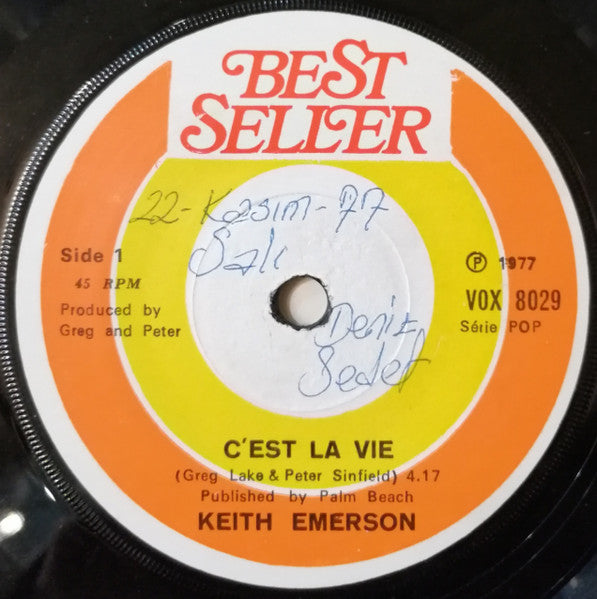 BEST
SELLER
22-Kasım-77
Salı
Side 1
45 RPM
Produced by
Greg and Peter
℗ 1977
VOX 8029
Série POP
Deniz
Sedef
C'EST LA VIE
(Greg Lake & Peter Sinfield) 4.17
Published by Palm Beach
KEITH EMERSON